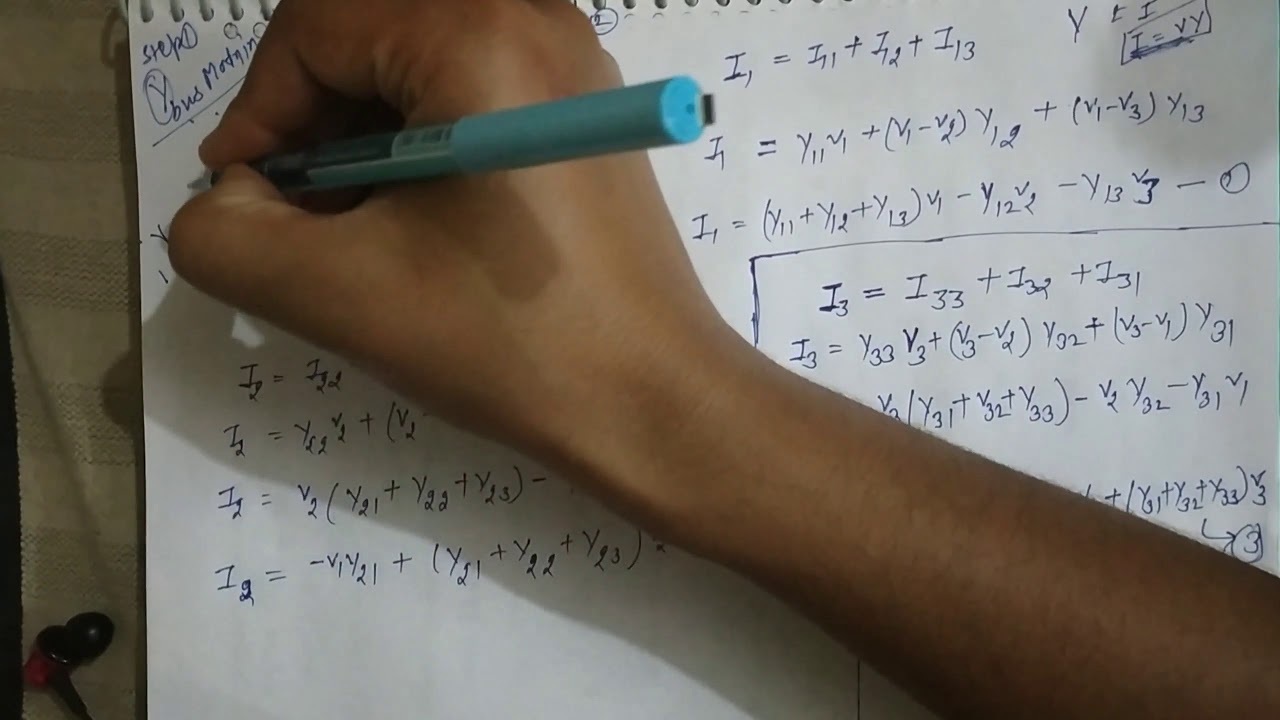 Step①
Ybus Matrix
②
Y
I
I = VY
I₁ = I₁₁ + I₁₂ + I₁₃
I₁ = Y₁₁V₁ + (V₁-V₂) Y₁₂ + (V₁-V₃) Y₁₃
I₁ = (Y₁₁+Y₁₂+Y₁₃)V₁ - Y₁₂V₂ - Y₁₃V₃ - ①
I₃ = I₃₃ + I₃₂ + I₃₁
I₃ = Y₃₃V₃ + (V₃-V₂) Y₃₂ + (V₃-V₁) Y₃₁
V₃(Y₃₁+Y₃₂+Y₃₃) - V₂Y₃₂ - Y₃₁V₁
+ (Y₃₁+Y₃₂+Y₃₃)V₃
↳ ③
I₂ = I₂₂
I₂ = Y₂₂V₂ + (V₂-
I₂ = V₂(Y₂₁+Y₂₂+Y₂₃) -
I₂ = -V₁Y₂₁ + (Y₂₁+Y₂₂+Y₂₃)